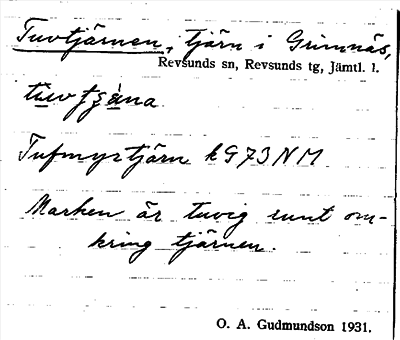 Tuvtjärnen, tjärn i Grimnäs,
Revsunds sn, Revsunds tg, Jämtl. l.
Tufmyrtjärn kG73NM
Marken är tuvig runt om-
kring tjärnen.
O. A. Gudmundson 1931.